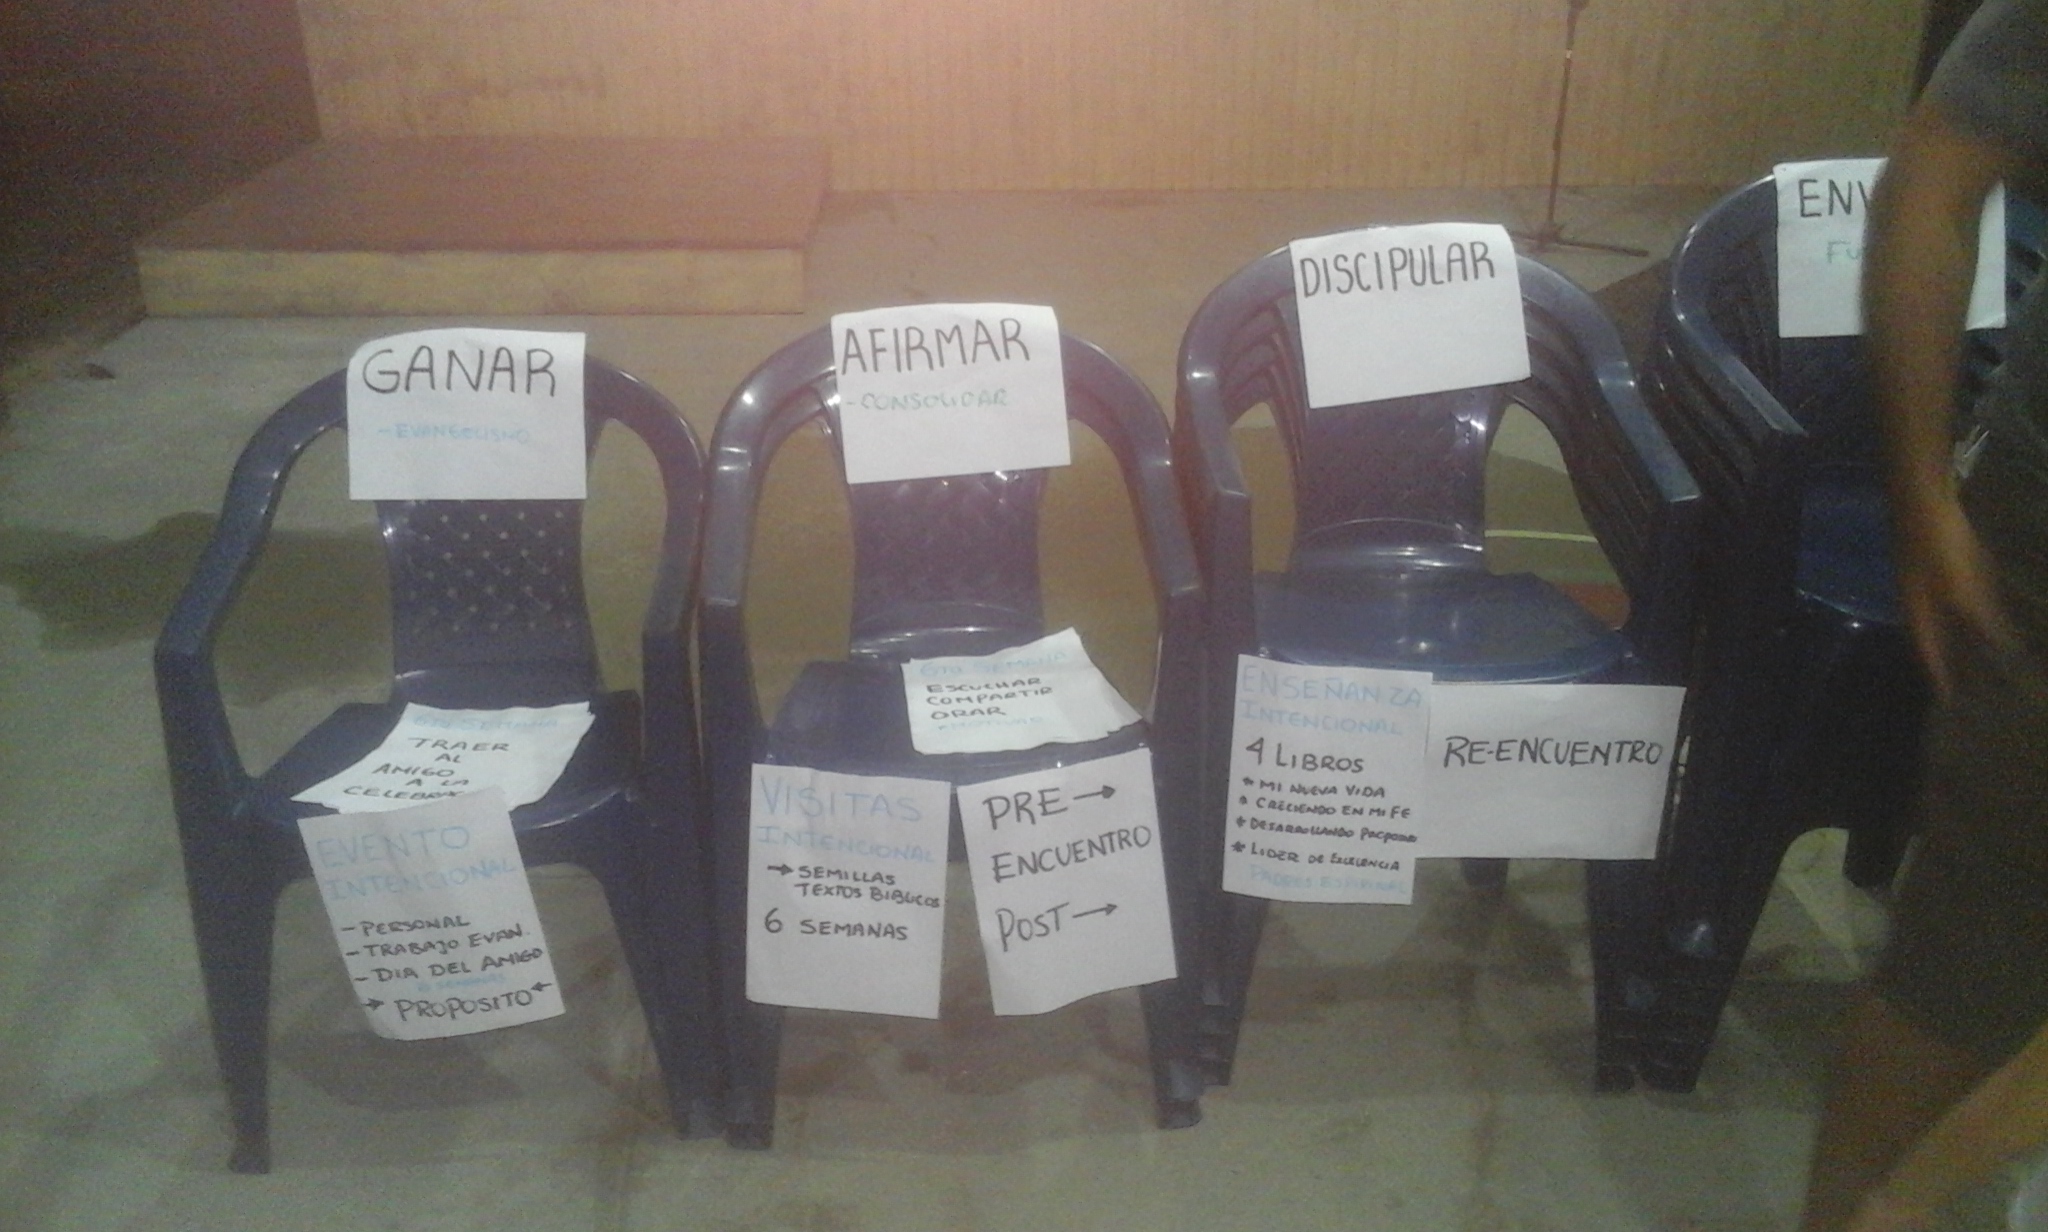 GANAR
- EVANGELISMO
6TA SEMANA
TRAER
AL
AMIGO
A LA
EVENTO
INTENCIONAL
- PERSONAL
- TRABAJO EVAN.
- DIA DEL AMIGO
6 SEMANAS
→ PROPOSITO ←
AFIRMAR
- CONSOLIDAR
6TA SEMANA
ESCUCHAR
COMPARTIR
ORAR
VISITAS
INTENCIONAL
→ SEMILLAS
TEXTOS BIBLICOS
6 SEMANAS
PRE →
ENCUENTRO
POST →
DISCIPULAR
ENSEÑANZA
INTENCIONAL
4 LIBROS
* MI NUEVA VIDA
* CRECIENDO EN MI FE
* DESARROLLANDO
* LIDER DE EXCELENCIA
PADRES
RE-ENCUENTRO